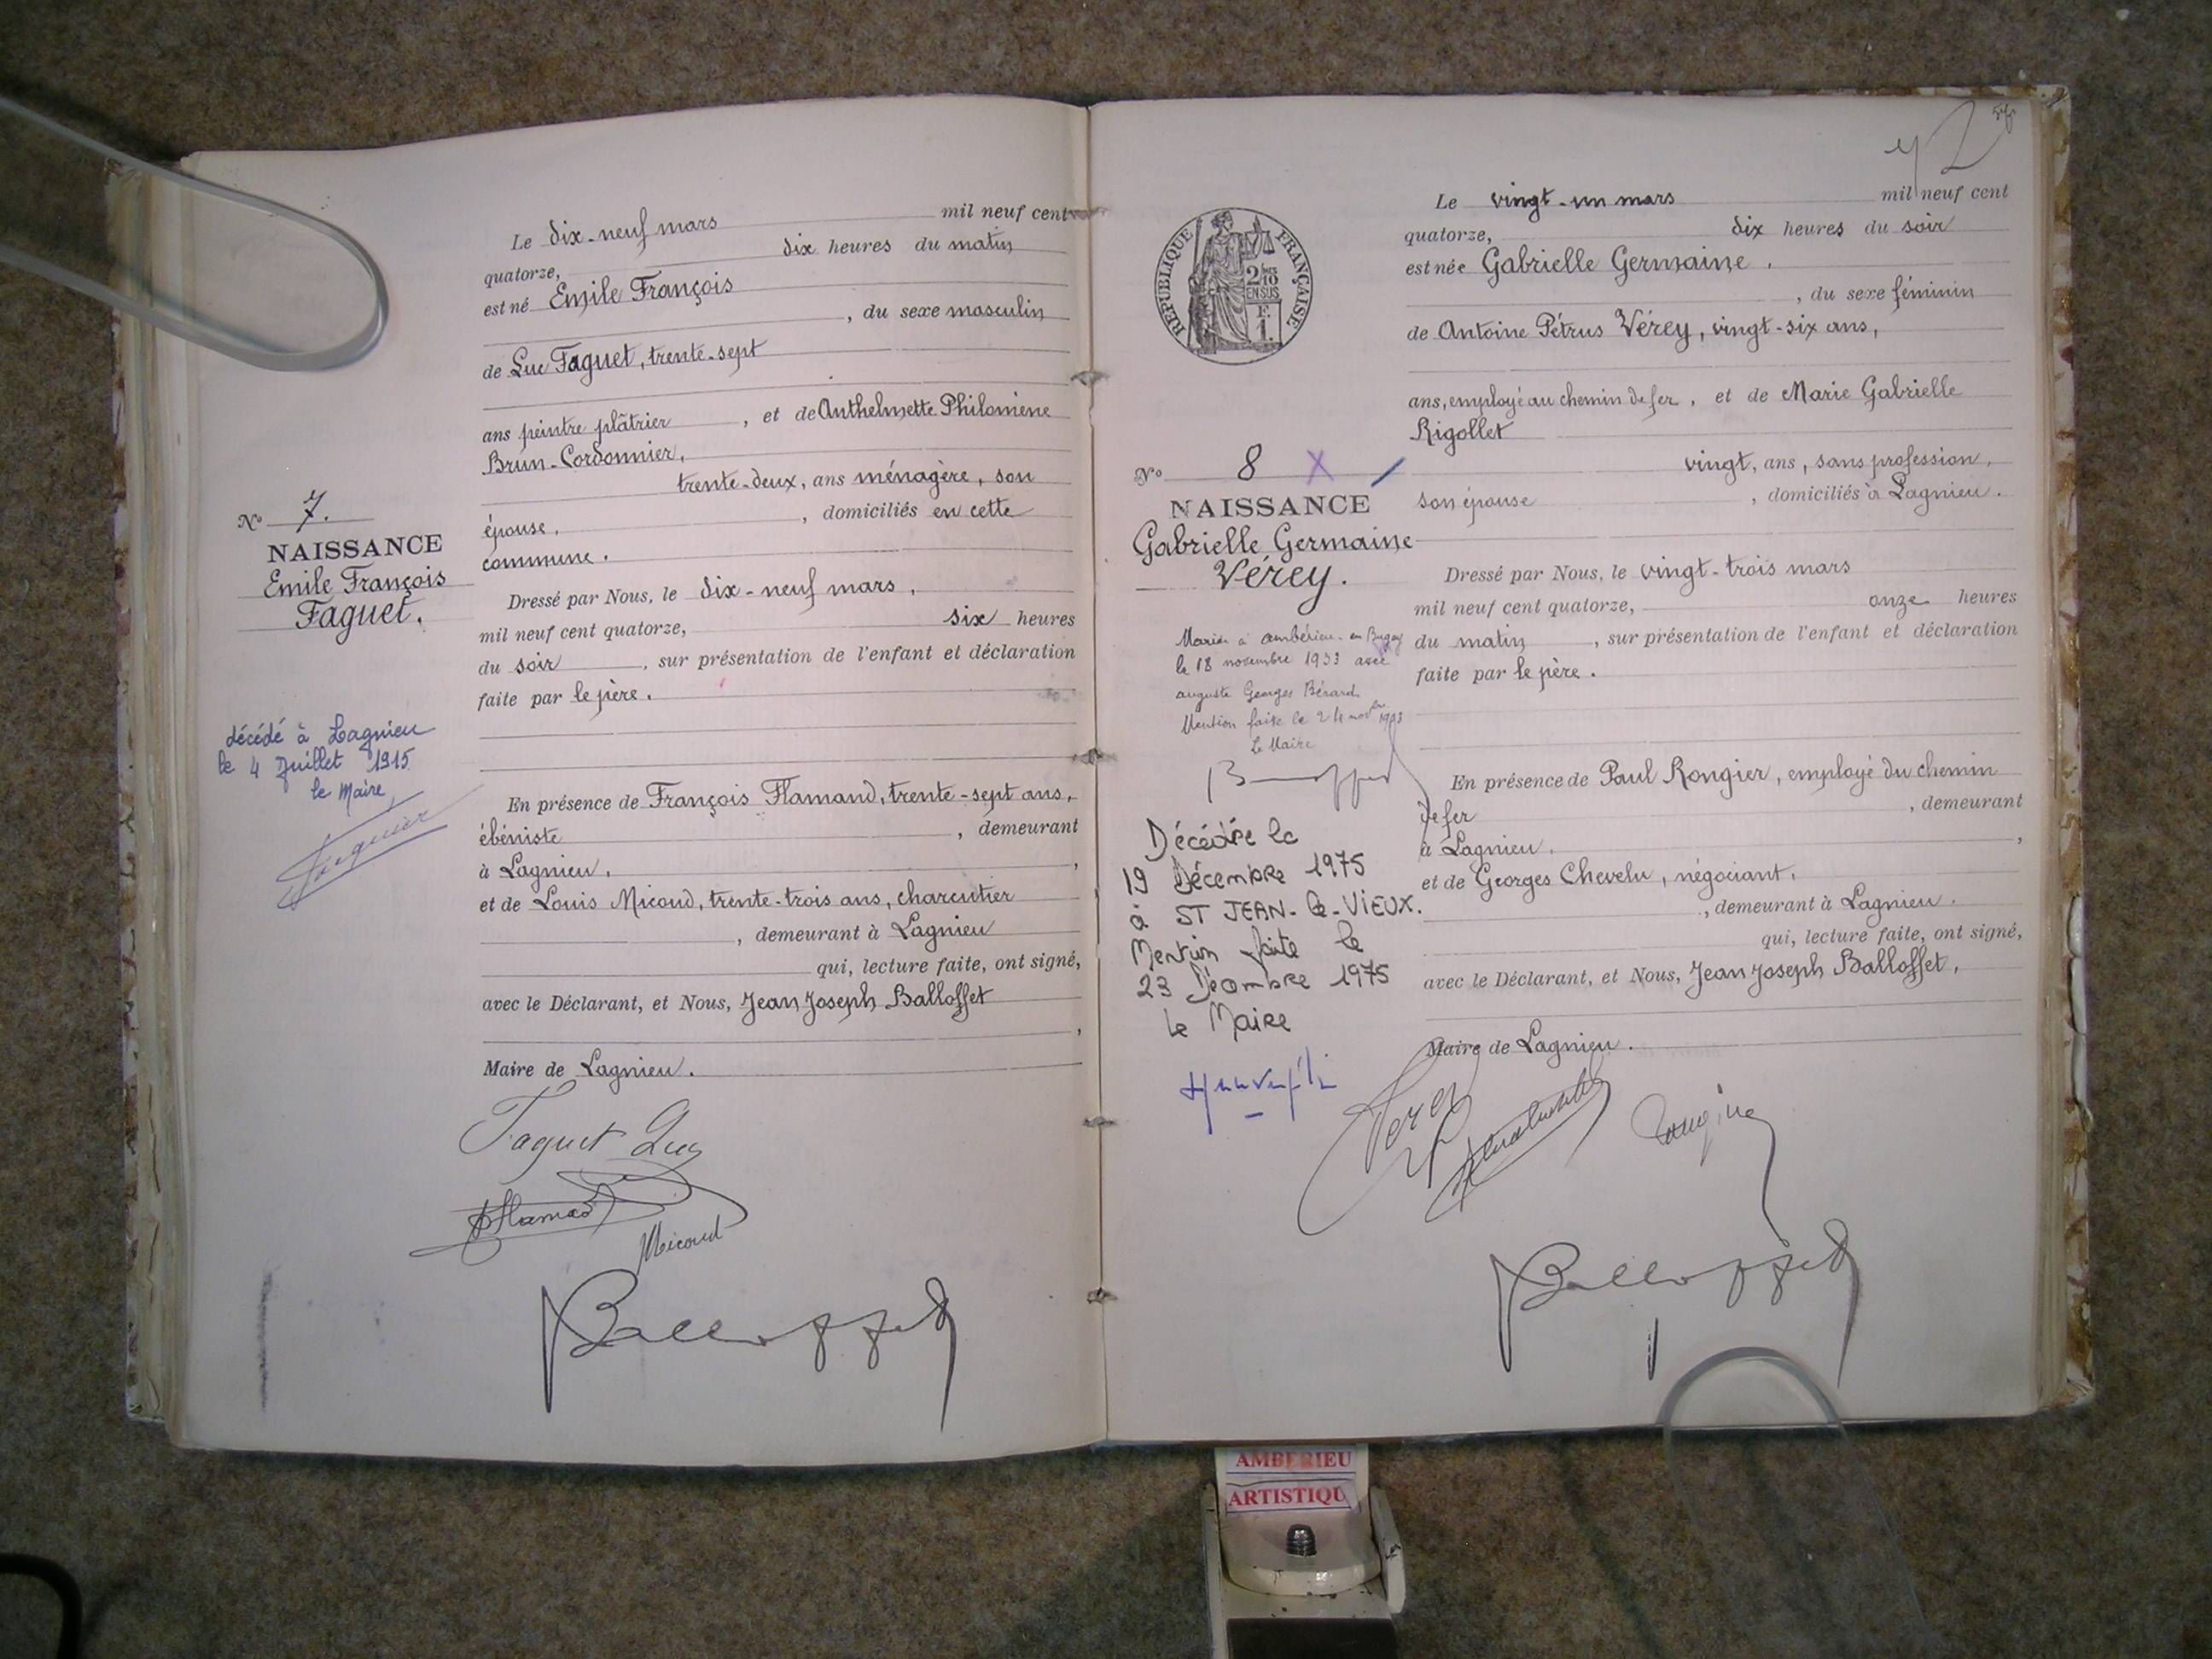 Le dix-neuf mars mil neuf cent
quatorze, dix heures du matin
est né Emile François
, du sexe masculin
de Luc Faguet, trente-sept
ans peintre plâtrier, et de Anthelmette Philomène
Brun-Cordonnier,
trente-deux, ans ménagère, son
épouse, , domiciliés en cette
commune.
Dressé par Nous, le dix-neuf mars,
mil neuf cent quatorze, six heures
du soir, sur présentation de l'enfant et déclaration
faite par le père.
En présence de François Flamand, trente-sept ans,
ébéniste, demeurant
à Lagnieu,
et de Louis Micoud, trente-trois ans, charcutier
, demeurant à Lagnieu
qui, lecture faite, ont signé,
avec le Déclarant, et Nous, Jean Joseph Balloffet
,
Maire de Lagnieu.
Faguet Luc
Flamand
Micoud
Balloffet
No 7.
NAISSANCE
Emile François
Faguet.
décédé à Lagnieu
le 4 Juillet 1915
le Maire
72
REPUBLIQUE FRANÇAISE
2/10
EN SUS
F.
1.
No 8 X
NAISSANCE
Gabrielle Germaine
Vérey.
Mariée à Ambérieu-en-Bugey
le 18 novembre 1933 avec
auguste Georges Bérard
Mention faite le 24 novbre 1933
Le Maire
Décédée le
19 Décembre 1975
à ST JEAN-le-VIEUX.
Mention faite le
23 Décembre 1975
le Maire
Le vingt-un mars mil neuf cent
quatorze, dix heures du soir
est née Gabrielle Germaine.
, du sexe féminin
de Antoine Pétrus Vérey, vingt-six ans,
ans, employé au chemin de fer, et de Marie Gabrielle
Rigollet
vingt, ans, sans profession,
son épouse, domiciliés à Lagnieu.
Dressé par Nous, le vingt-trois mars
mil neuf cent quatorze, onze heures
du matin, sur présentation de l'enfant et déclaration
faite par le père.
En présence de Paul Rongier, employé du chemin
de fer, demeurant
à Lagnieu,
,
et de Georges Chevelu, négociant,
, demeurant à Lagnieu.
qui, lecture faite, ont signé,
avec le Déclarant, et Nous, Jean Joseph Balloffet,
Maire de Lagnieu.
Verey
Rongier
Balloffet
AMBERIEU
ARTISTIQU